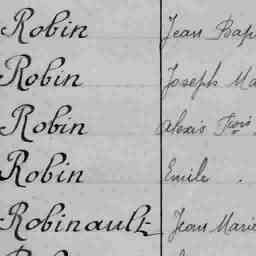 Robin Jean Bap
Robin Joseph Ma
Robin Alexis Fçois
Robin Emile
Robinault Jean Marie